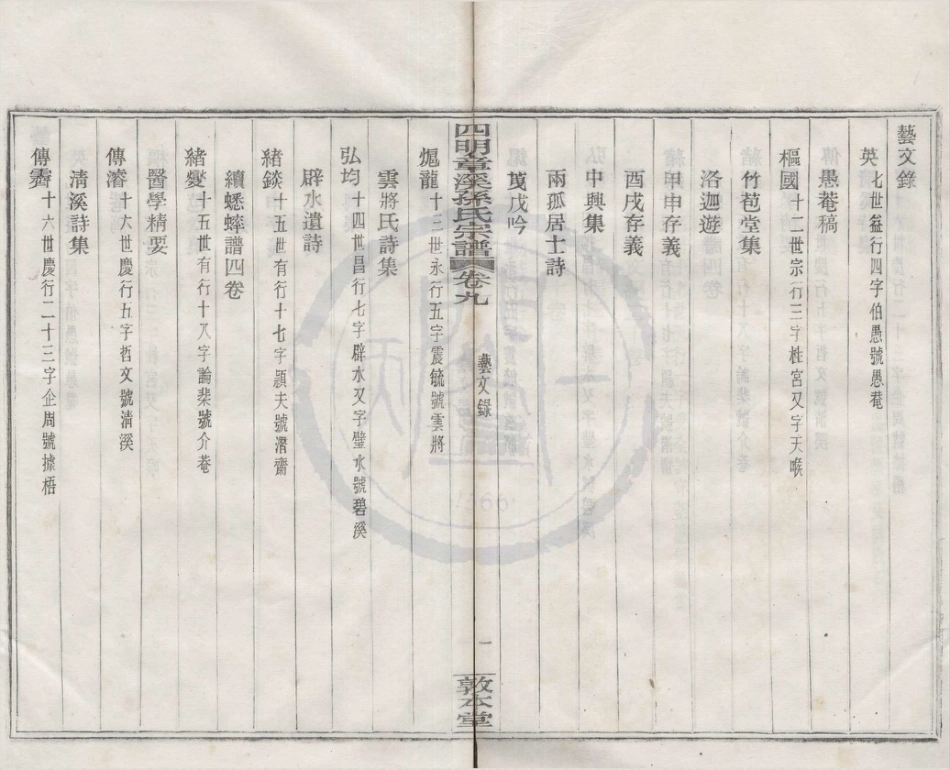 藝文錄
英 七世益行四字伯愚號愚菴
愚菴稿
樞國 十二世宗行三字桂宮又字天喉
竹苞堂集
洛迦遊
甲申存義
酉戌存義
中興集
兩孤居士詩
戊吟
四明章溪孫氏宗譜 卷九 藝文錄 一 敦本堂
熄龍 十三世永行五字震毓號雲將
雲將氏詩集
弘均 十四世昌行七字辟水又字璧水號碧溪
辟水遺詩
緒錟 十五世有行十七字穎夫號潛齋
續蟋蟀譜四卷
緒燮 十五世有行十八字論棐號介菴
醫學精要
傳濬 十六世慶行五字哲文號清溪
清溪詩集
傳霽 十六世慶行二十三字企周號據梧